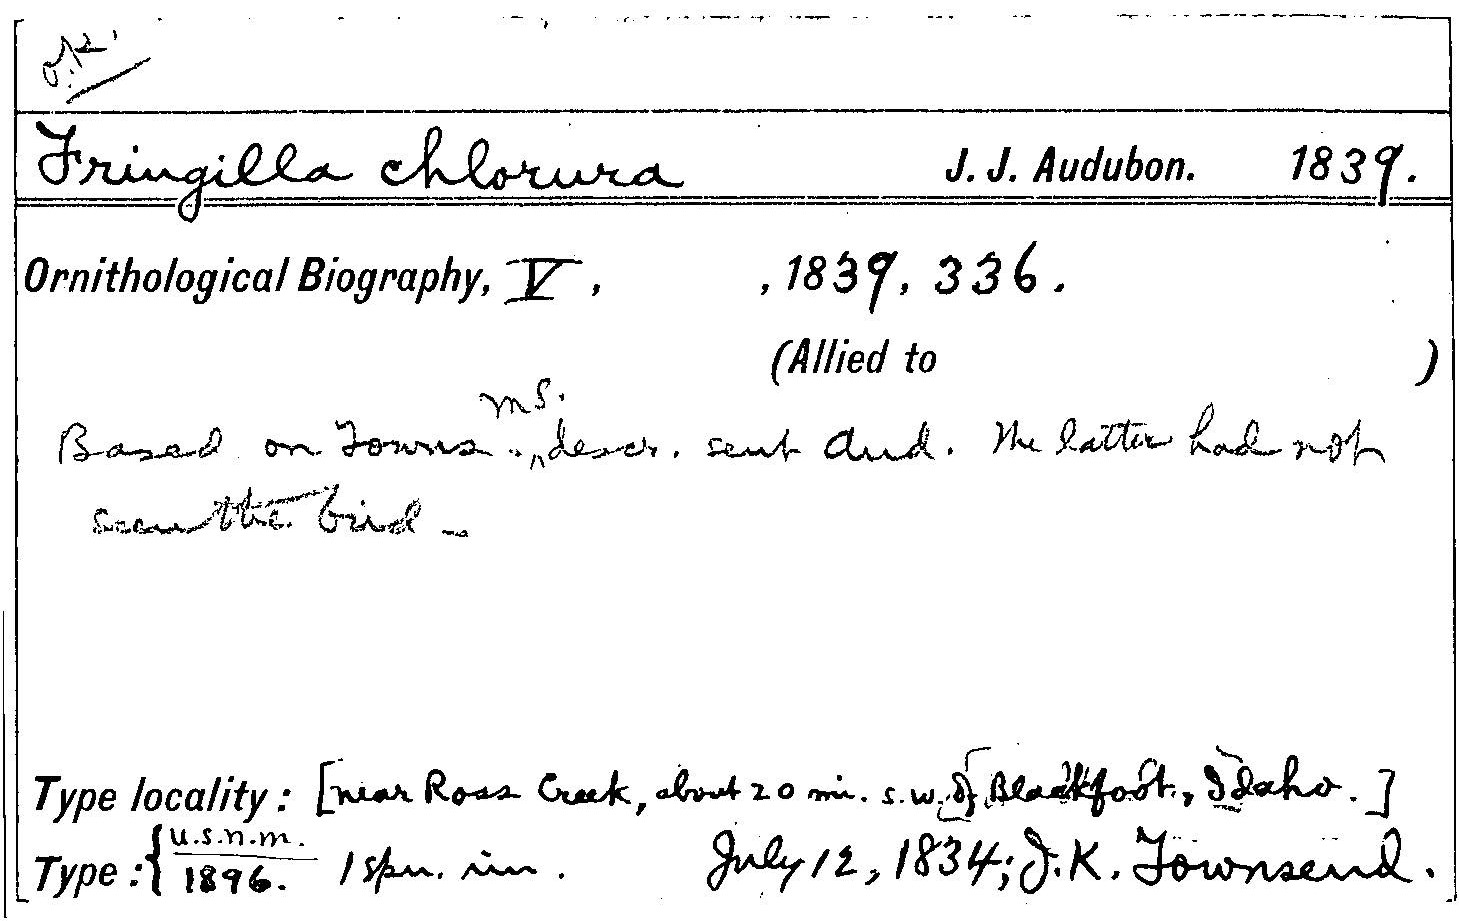 O.K.
Fringilla chlorura J. J. Audubon. 1839.
Ornithological Biography, V, , 1839, 336.
(Allied to )
ms.
Based on Towns. descr. sent Aud. The latter had not
seen the bird -
Type locality: [near Ross Creek, about 20 mi. s.w. of Blackfoot, Idaho.]
U.S.N.M.
Type: { 1896. 1 spn. im. July 12, 1834; J.K. Townsend.